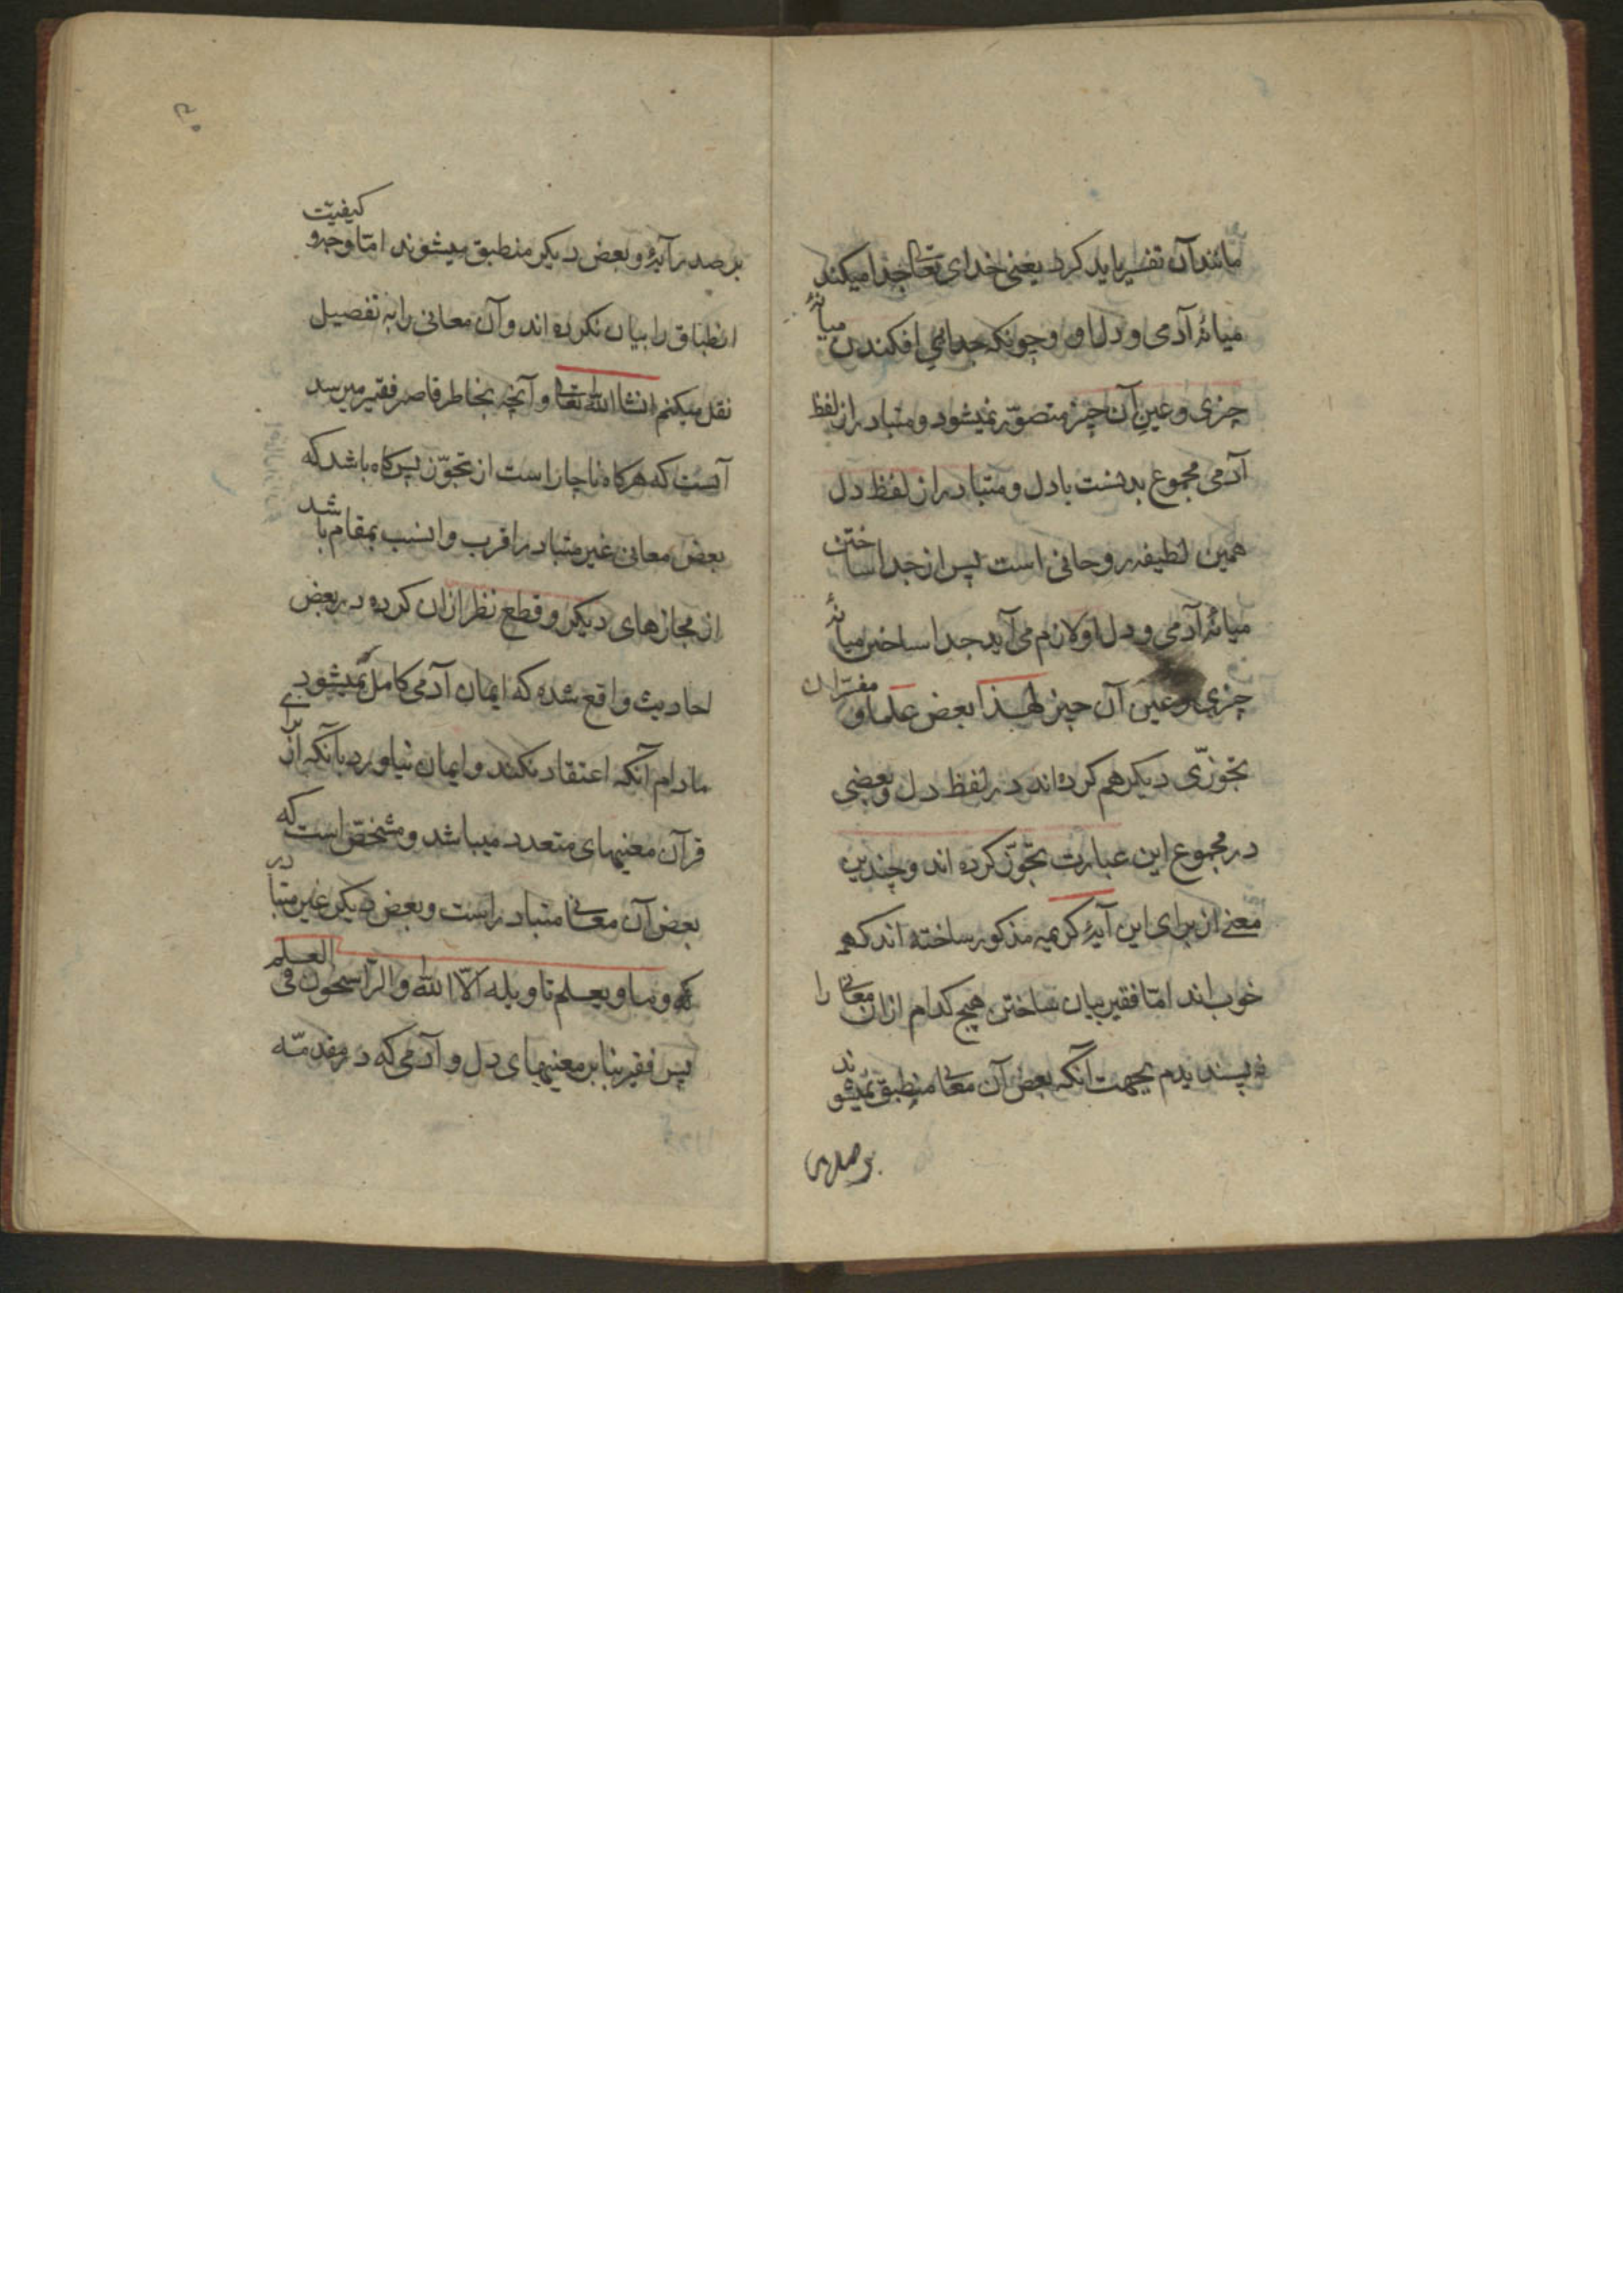 مانند آن تفسیر باید کرد یعنی خدای تعالی جدا میکند
میانهٔ آدمی و دل او و چونکه جدائی افکندن میانهٔ
چیزی و عین آن چیز متصوّر نمیشود و متبادر از لفظ
آدمی مجموع بدنست با دل و متبادر از لفظ دل
همین لطیفه روحانی است پس از جدا ساختن
میانهٔ آدمی و دل او لازم می آید جدا ساختن میانهٔ
چیزی و عین آن چیز لهذا بعض علما و مفسّران
تجوّزی دیکر هم کرده اند در لفظ دل و بعضی
در مجموع این عبارت تجوّز کرده اند و چندین
معنے از برای این آیهٔ کریمه مذکور ساخته اند که همه
خوب اند امّا فقیر بیان ساختن هیچ کدام از ان معانی را
نه پسندیدم بجهت آنکه بعض آن معانی منطبق نمیشوند
بر صدر
۳۰
بر صدر آیهٔ و بعض دیکر منطبق میشوند امّا وجه و کیفیّت
انطباق را بیان نکرده اند و آن معانی را به تفصیل
نقل میکنم انشا الله تعالی و آنچه بخاطر قاصر فقیر میرسد
آنست که هرکاه ناچار است از تجوّز پس کاه باشد که
بعض معانی غیر متبادر اقرب و انسب بمقام باشد
از مجازهای دیکر و قطع نظر ازان کرده در بعض
احادیث واقع شده که ایمان آدمی کامل نمیشود
مادام آنکه اعتقاد نکند و ایمان نیاورد بآنکه از برای
قرآن معنیهای متعدد میباشد و مشخّص است که
بعض آن معانی متبادر است و بعض دیکر غیر متبادر
که و ما یعلم تاویله الّا الله و الرّاسخون فی العلم
پس فقیر بنابر معنیهای دل و آدمی که در مقدمّه